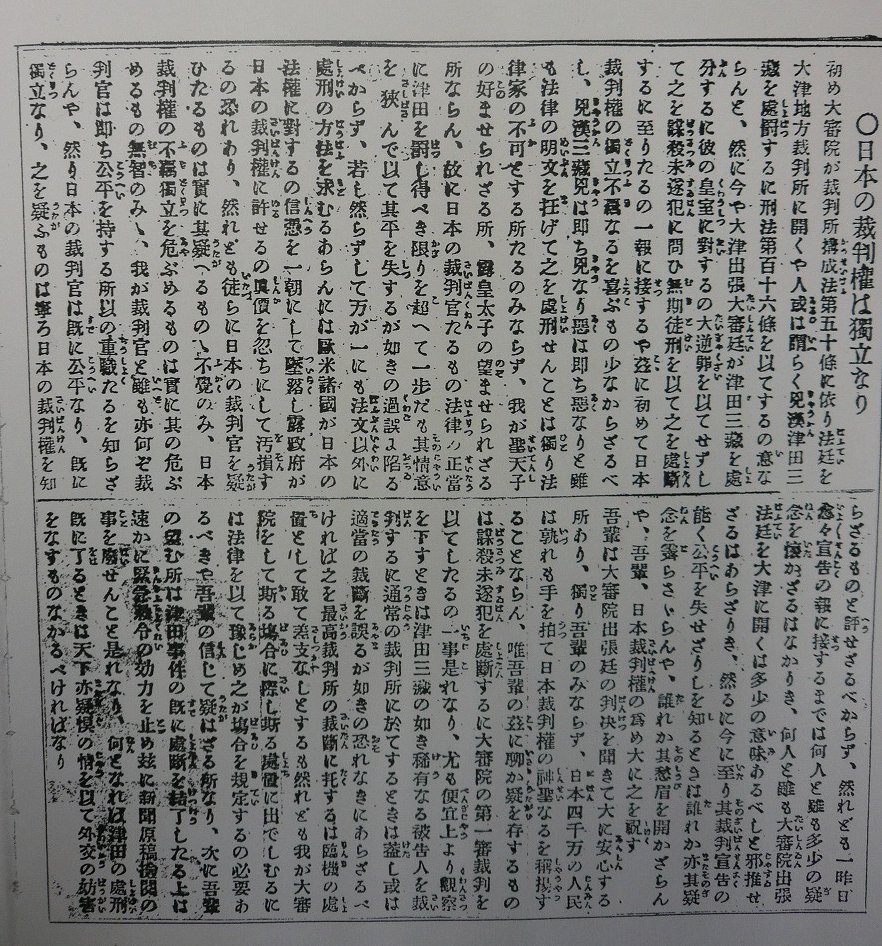 〇日本の裁判權は獨立なり
初め大審院が裁判所搆成法第五十條に依り法廷を
大津地方裁判所に開くや人或は謂らく兇漢津田三
藏を處罰するに刑法第百十六條を以てするの意な
らんと、然に今や大津出張大審廷が津田三藏を處
分するに彼の皇室に對するの大逆罪を以てせずし
て之を謀殺未遂犯に問ひ無期徒刑を以て之を處斷
するに至りたるの一報に接するや茲に初めて日本
裁判權の獨立不羈なるを喜ぶもの少なからざるべ
し、兇漢三藏兇は即ち兇なり惡は即ち惡なりと雖
も法律の明文を抂げて之を處刑せんことは獨り法
律家の不可とする所たるのみならず、我が聖天子
の好ませられざる所、露皇太子の望ませられざる
所ならん、故に日本の裁判官たるもの法律の正當
に津田を罰し得べき限りを超へて一歩だも其情意
を狹んで以て其平を失するが如きの過誤に陷る
べからず、若し然らずして万が一にも法文以外に
處刑の方法を求むるあらんには歐米諸國が日本の
法權に對するの信憑を一朝にして墜落し露政府が
日本の裁判權に許せるの眞價を忽ちにして汚損す
るの恐れあり、然れども徒らに日本の裁判官を疑
ひたるものは實に其疑へるもの丶不覺のみ、日本
裁判權の不羈獨立を危ぶめるものは實に其の危ぶ
めるもの無智のみ丶、我が裁判官と雖も亦何ぞ裁
判官は即ち公平を持する所以の重職たるを知らざ
らんや、然り日本の裁判官は既に公平なり、既に
獨立なり、之を疑ふものは寧ろ日本の裁判權を知
らざるものと評せざるべからず、然れども一昨日
愈々宣告の報に接するまでは何人と雖も多少の疑
念を懷かざるはなかりき、何人と雖も大審院出張
法廷を大津に開くは多少の意味あるべしと邪推せ
ざるはあらざりき、然るに今に至り其裁判宣告の
能く公平を失せざりしを知るときは誰れか亦其疑
念を霽らさゞらんや、誰れか其愁眉を開かざらん
や、吾輩、日本裁判權の爲め大に之を祝す
吾輩は大審院出張廷の判决を聞きて大に安心する
所あり、獨り吾輩のみならず、日本四千万の人民
は孰れも手を拍て日本裁判權の神聖なるを稱揚す
ることならん、唯吾輩の茲に聊か疑を存するもの
は謀殺未遂犯を處斷するに大審院の第一審裁判を
以てしたるの一事是れなり、尤も便宜上より觀察
を下すときは津田三藏の如き稀有なる被告人を裁
判するに通常の裁判所に於てするときは蓋し或は
適當の裁斷を誤るが如きの恐れなきにあらざるべ
ければ之を最高裁判所の裁斷に托するは臨機の處
置として敢て差支なしとするも然れども我が大審
院をして斯る塲合に際し斯る處置に出でしむるに
は法律を以て豫じめ之が塲合を規定するの必要あ
るべきや吾輩の信じて疑はざる所なり、次に吾輩
の望む所は津田事件の既に處斷を結了したる上は
速かに緊急勅令の効力を止め茲に新聞原稿檢閲の
事を廢せんこと是れなり、何となれば津田の處刑
既に了るときは天下亦疑惧の情を以て外交の妨害
をなすものなかるべければなり